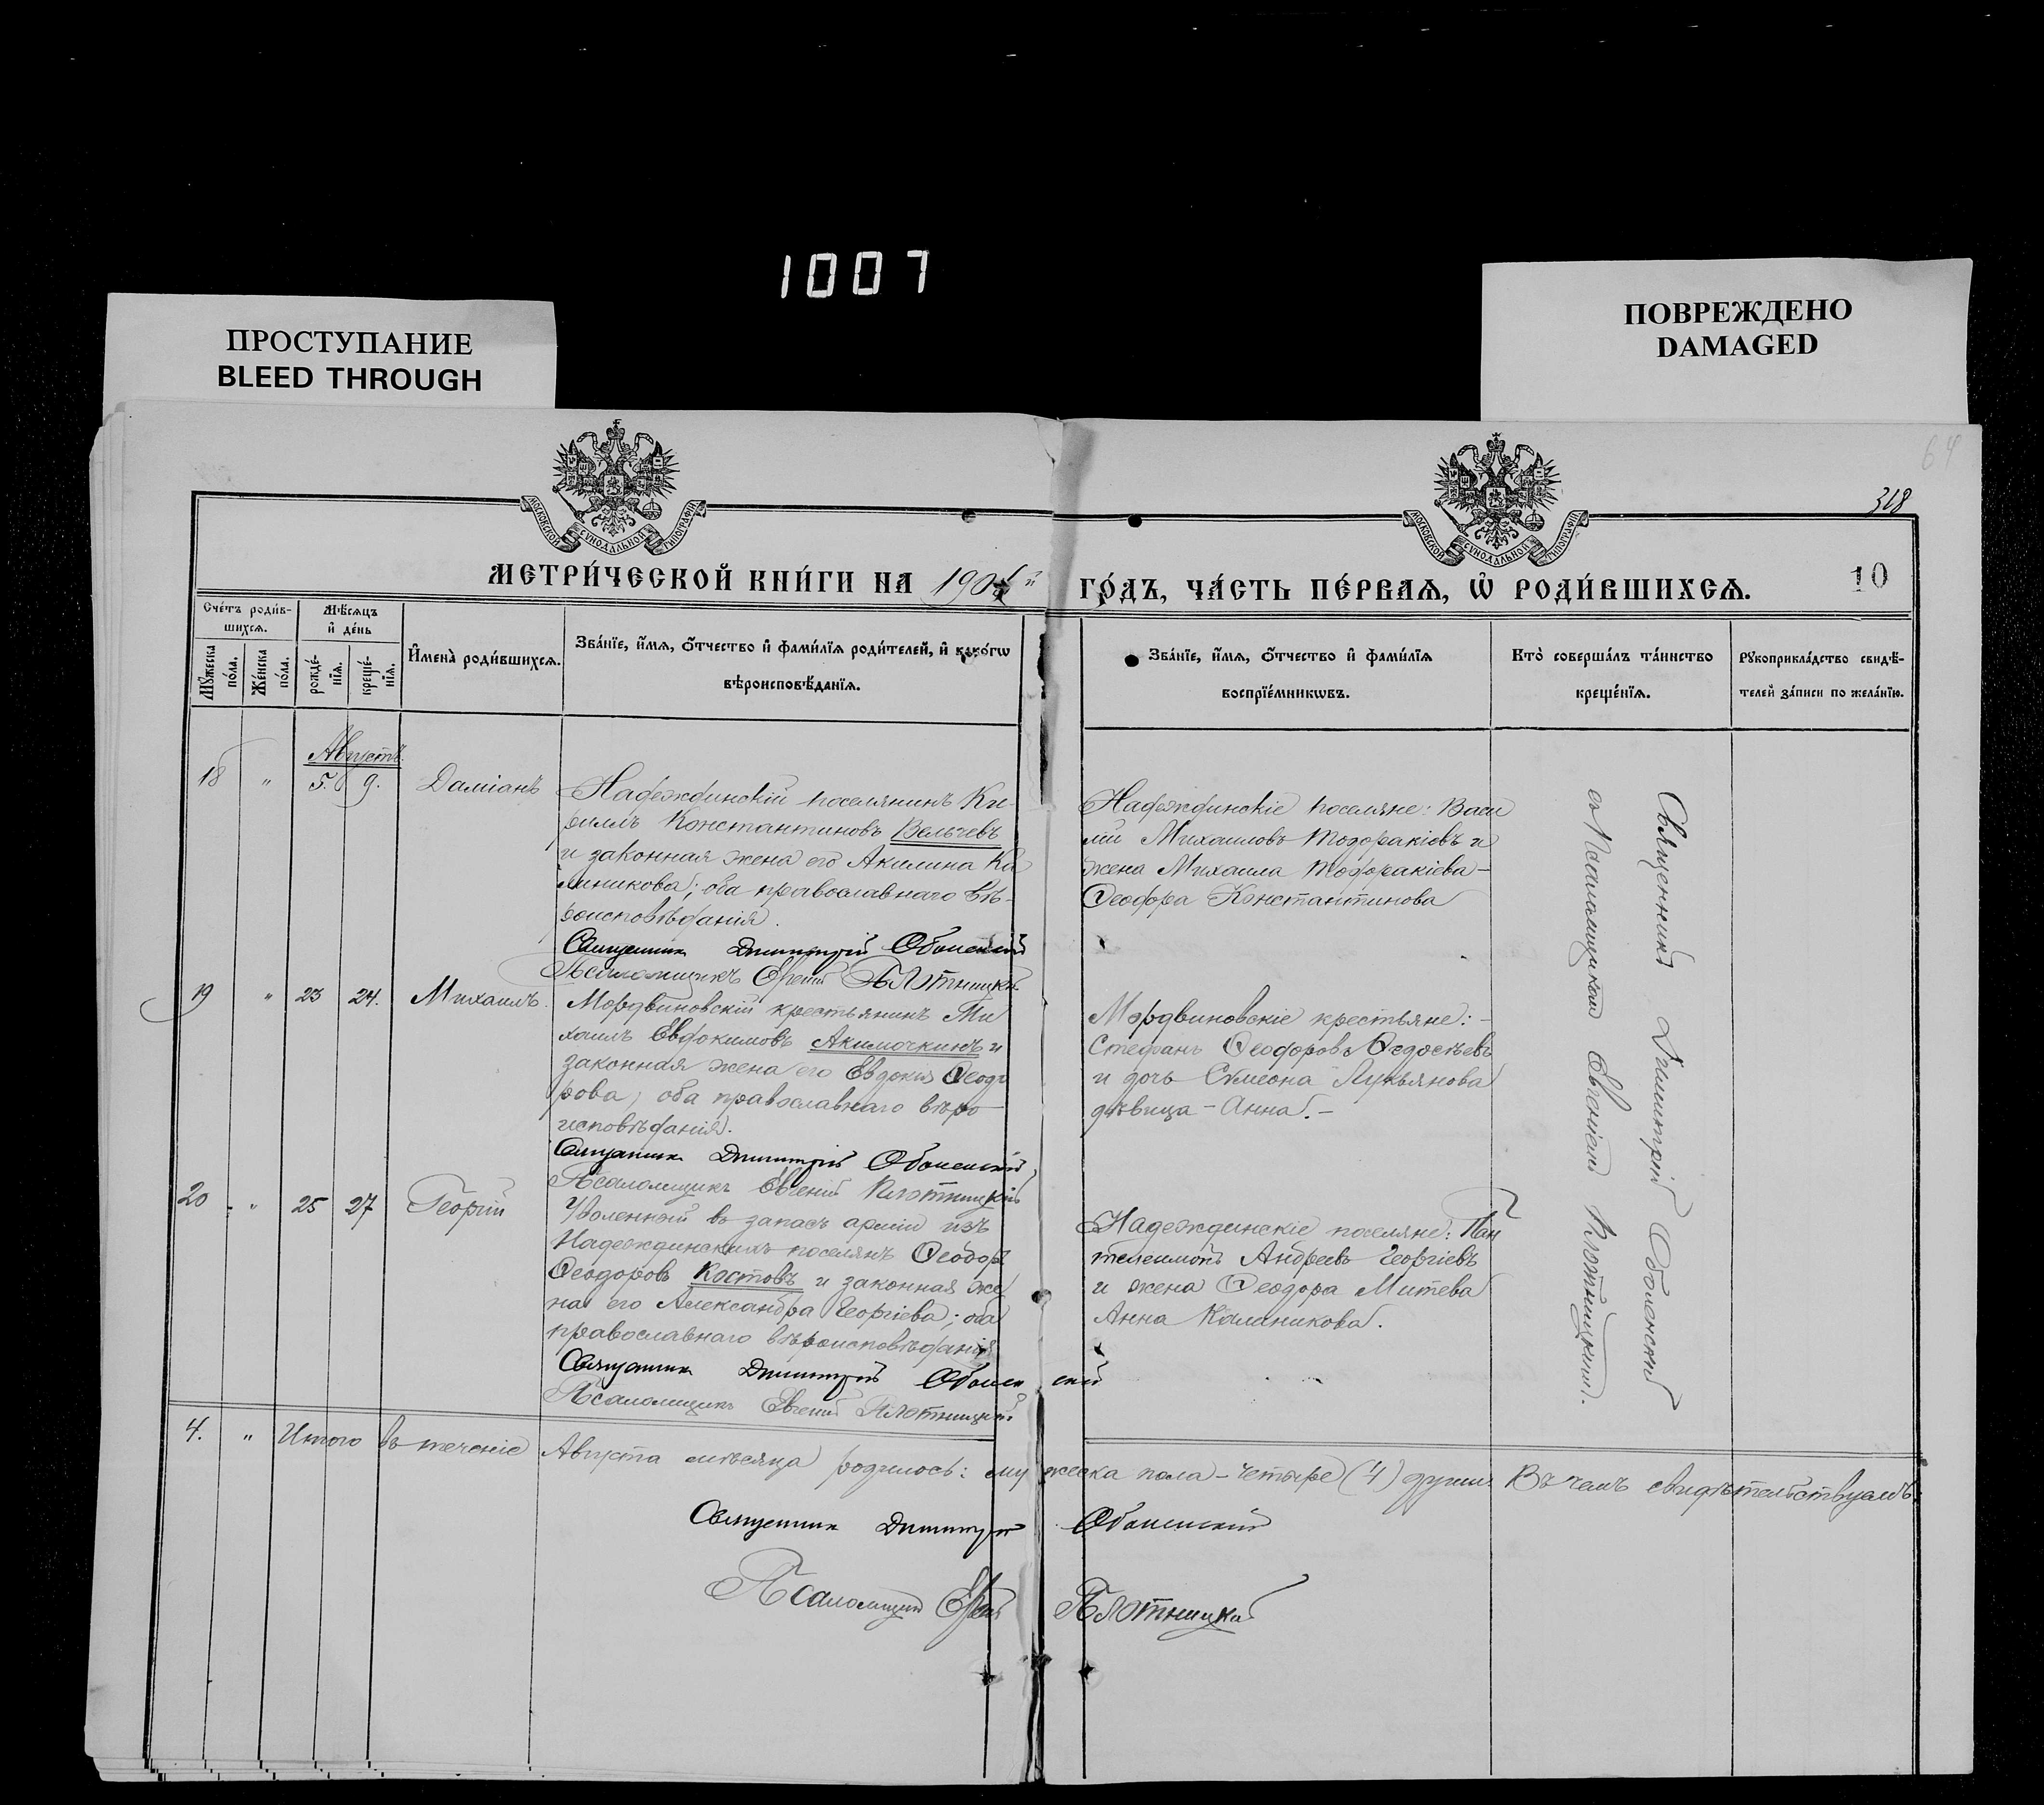 1007
ПРОСТУПАНИЕ
BLEED THROUGH
ПОВРЕЖДЕНО
DAMAGED
64
318
МОСКОВСКОЙ СѴНОДАЛЬНОЙ ТИПОГРАФІИ
МОСКОВСКОЙ СѴНОДАЛЬНОЙ ТИПОГРАФІИ
МЕТРИ́ЧЕСКОЙ КНИ́ГИ НА 190 й
ГО́ДЪ, ЧА́СТЬ ПЕ́РВАѦ, Ѡ҆ РОДИ́ВШИХСѦ.
10
Сче́тъ роди́в-
шихсѧ.
Мꙋ́жеска по́ла.
Же́нска по́ла.
Мѣ́сяцъ
и҆ де́нь
рожде́-
нїѧ.
креще́-
нїѧ.
И҆мена̀ роди́вшихсѧ.
Зва́нїе, и҆́мѧ, ѻ҆́тчество и҆ фами́лїѧ роди́телей, и҆ како́гѡ
вѣроисповѣ́данїѧ.
Зва́нїе, и҆́мѧ, ѻ҆́тчество и҆ фами́лїѧ
воспрїе́мникѡвъ.
Кто̀ соверша́лъ та́инство
креще́нїѧ.
Рꙋкоприкла́дство свидѣ́-
телей за́писи по жела́нїю.
Августъ.
18 " 5. 9. Даміанъ
Надеждинскій поселянинъ Ки-
риллъ Константиновъ Вельчевъ
и законная жена его Акилина Ка
линикова; оба православнаго вѣ-
роисповѣданія.
Священник Димитрій Оболенскій
Псаломщикъ Евгеній Плотницкій
Надеждинскіе поселяне: Васи
лій Михаиловъ Тодоракіевъ и
жена Михаила Тодоракіева -
Ѳеодора Константинова
19 " 23 24. Михаилъ.
Мордвиновскій крестьянинъ Ми
хаилъ Евдокимовъ Акимочкинъ и
законная жена его Евдокія Ѳеодо
рова; оба православнаго вѣро-
исповѣданія.
Священник Димитрій Оболенскій
Псаломщикъ Евгеній Плотницкій
Мордвиновскіе крестьяне: -
Стефанъ Ѳеодоровъ Ѳедосѣевъ
и дочь Сѵмеона Лукьянова
дѣвица - Анна. -
20 " 25 27 Георгій
Уволенный въ запасъ арміи изъ
Надеждинскихъ поселянъ Ѳеодоръ
Ѳеодоровъ Костовъ и законная же
на его Александра Георгіева; оба
православнаго вѣроисповѣданія
Священник Димитрій Оболенскій
Псаломщикъ Евгеній Плотницкій
Надеждинскіе поселяне: Пан
телеимонъ Андреевъ Георгіевъ
и жена Ѳеодора Митева
Анна Калиникова.
Священникъ Димитрій Оболенскій
съ Псаломщикомъ Евгеніемъ Плотницкимъ.
4. " Итого въ теченіе Августа мѣсяца родилось: мужеска пола - четыре (4) души. Въ чемъ свидѣтельствуемъ:
Священник Димитрій Оболенскій
Псаломщикъ Евгеній Плотницкій